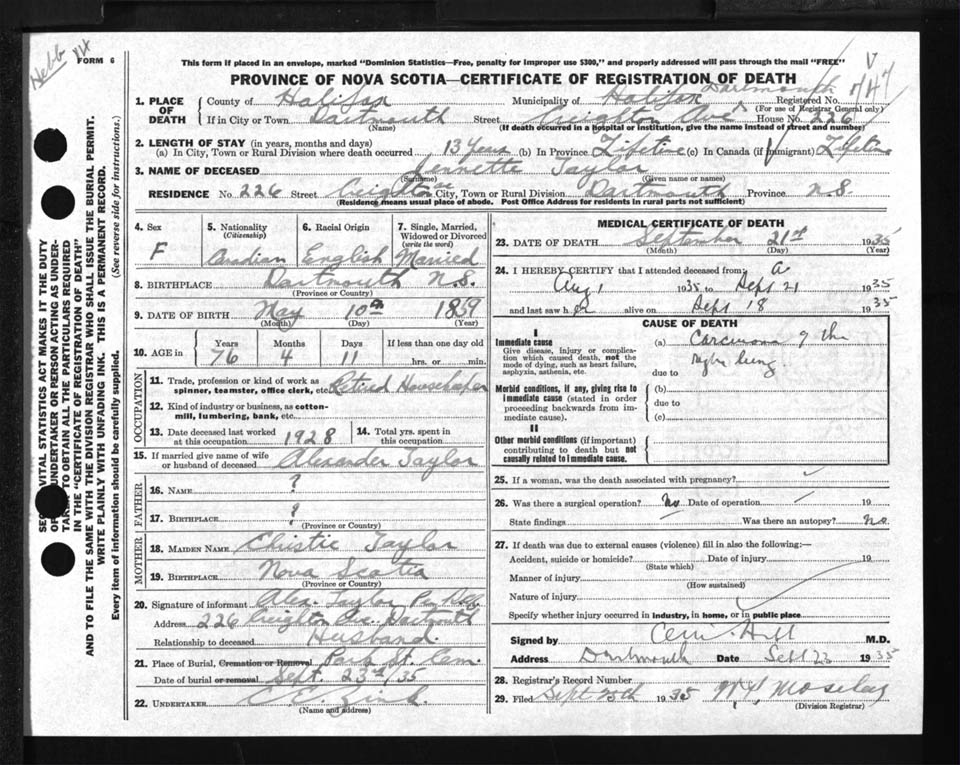 Hebb
FORM 6
This form if placed in an envelope, marked "Dominion Statistics—Free, penalty for improper use $300," and properly addressed will pass through the mail "FREE"
PROVINCE OF NOVA SCOTIA—CERTIFICATE OF REGISTRATION OF DEATH
1. PLACE OF DEATH
County of Halifax Municipality of Halifax Dartmouth Registered No. 747
(For use of Registrar General only)
If in City or Town Dartmouth Street Creighton Ave House No. 226
(Name) (If death occurred in a hospital or institution, give the name instead of street and number)
2. LENGTH OF STAY (in years, months and days)
(a) In City, Town or Rural Division where death occurred 13 years (b) In Province Lifetime (c) In Canada (if immigrant) Lifetime
3. NAME OF DECEASED Jennette Taylor
(Surname) (Given name or names)
RESIDENCE No. 226 Street Creighton City, Town or Rural Division Dartmouth Province N.S.
(Residence means usual place of abode. Post Office Address for residents in rural parts not sufficient)
4. Sex
F
5. Nationality
(Citizenship)
Canadian
6. Racial Origin
English
7. Single, Married, Widowed or Divorced
(write the word)
Married
8. BIRTHPLACE Dartmouth N.S.
(Province or Country)
9. DATE OF BIRTH May 10th 1859
(Month) (Day) (Year)
10. AGE in
Years Months Days If less than one day old
76 4 11 hrs. or min.
OCCUPATION
11. Trade, profession or kind of work as spinner, teamster, office clerk, etc. Retired Housekeeper
12. Kind of industry or business, as cotton-mill, lumbering, bank, etc.
13. Date deceased last worked at this occupation 1928
14. Total yrs. spent in this occupation
15. If married give name of wife or husband of deceased Alexander Taylor
FATHER
16. NAME ?
17. BIRTHPLACE ?
(Province or Country)
MOTHER
18. MAIDEN NAME Christie Taylor
19. BIRTHPLACE Nova Scotia
(Province or Country)
20. Signature of informant Alex. Taylor Per
Address 226 Creighton Ave. Dartmouth
Relationship to deceased Husband.
21. Place of Burial, Cremation or Removal Park St. Cem.
Date of burial or removal Sept. 23rd/35
22. UNDERTAKER
(Name and address)
MEDICAL CERTIFICATE OF DEATH
23. DATE OF DEATH September 21st 1935
(Month) (Day) (Year)
24. I HEREBY CERTIFY that I attended deceased from:
Aug 1 1935 to Sept 21 1935
and last saw her alive on Sept 18 1935
CAUSE OF DEATH
I
Immediate cause
Give disease, injury or complication which caused death, not the mode of dying, such as heart failure, asphyxia, asthenia, etc.
(a) Carcinoma of the
right lung
due to
Morbid conditions, if any, giving rise to immediate cause (stated in order proceeding backwards from immediate cause).
(b)
due to
(c)
II
Other morbid conditions (if important) contributing to death but not causally related to immediate cause.
25. If a woman, was the death associated with pregnancy?
26. Was there a surgical operation? No Date of operation 19
State findings Was there an autopsy? No
27. If death was due to external causes (violence) fill in also the following:—
Accident, suicide or homicide? Date of injury 19
(State which)
Manner of injury
(How sustained)
Nature of injury
Specify whether injury occurred in industry, in home, or in public place
Signed by Hill M.D.
Address Dartmouth Date Sept 23 1935
28. Registrar's Record Number
29. Filed Sept 25th 1935 Moseley
(Division Registrar)
AND TO FILE THE SAME WITH THE DIVISION REGISTRAR WHO SHALL ISSUE THE BURIAL PERMIT.
WRITE PLAINLY WITH UNFADING INK. THIS IS A PERMANENT RECORD.
Every item of information should be carefully supplied. (See reverse side for instructions.)
VITAL STATISTICS ACT MAKES IT THE DUTY
UNDERTAKER OR PERSON ACTING AS UNDER-
TO OBTAIN ALL THE PARTICULARS REQUIRED
IN THE "CERTIFICATE OF REGISTRATION OF DEATH"